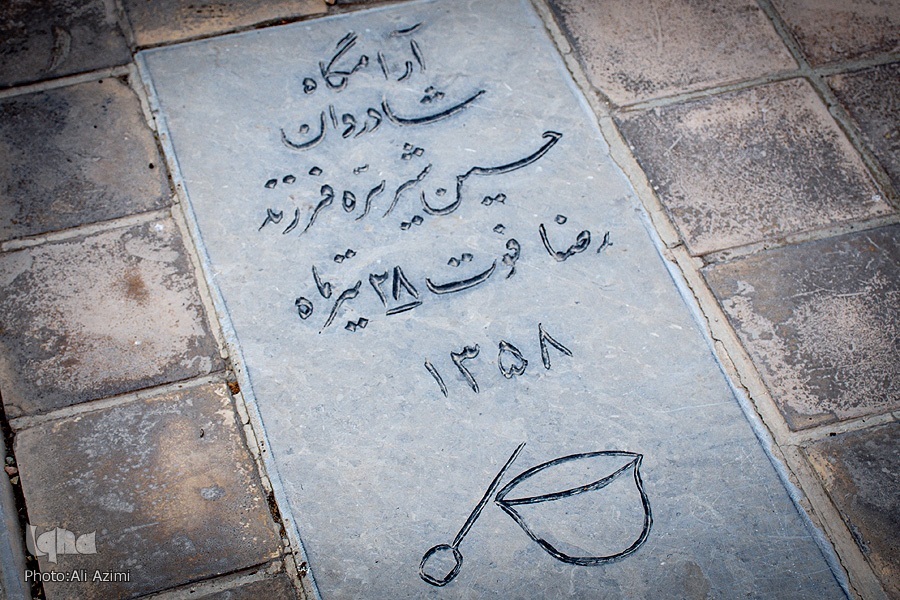 آرامگاه
شادروان
حسین شیرتره فرزند
رضا فوت ۲۸ تیرماه
۱۳۵۸
Iqna
Photo:Ali Azimi